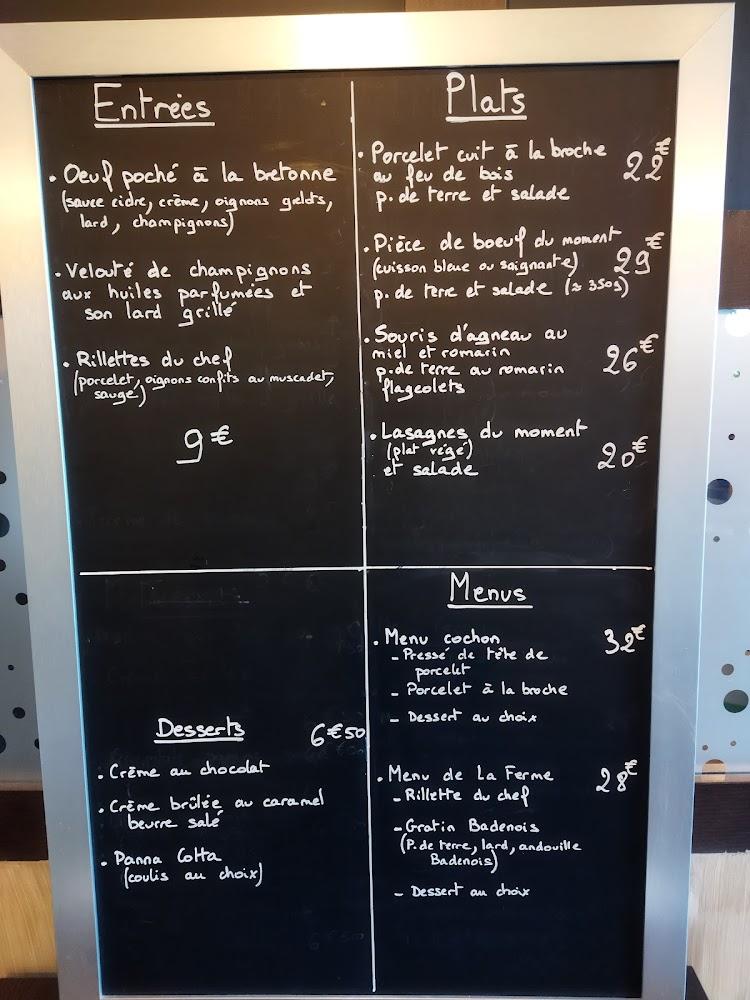 Entrées
• Oeuf poché à la bretonne
(sauce cidre, crème, oignons grelots,
lard, champignons)
• Velouté de champignons
aux huiles parfumées et
son lard grillé
• Rillettes du chef
(porcelet, oignons confits au muscadet,
sauge)
9€
Plats
• Porcelet cuit à la broche 22€
au feu de bois
p. de terre et salade
• Pièce de boeuf du moment 29€
(cuisson bleue ou saignante)
p. de terre et salade (≈ 350g)
• Souris d'agneau au 26€
miel et romarin
p. de terre au romarin
flageolets
• Lasagnes du moment 20€
(plat végé)
et salade
Desserts 6€50
• Crème au chocolat
• Crème brûlée au caramel
beurre salé
• Panna Cotta
(coulis au choix)
Menus
• Menu cochon 32€
- Pressé de tête de
porcelet
- Porcelet à la broche
- Dessert au choix
• Menu de La Ferme 28€
- Rillette du chef
- Gratin Badenois
(P. de terre, lard, andouille
Badenois)
- Dessert au choix